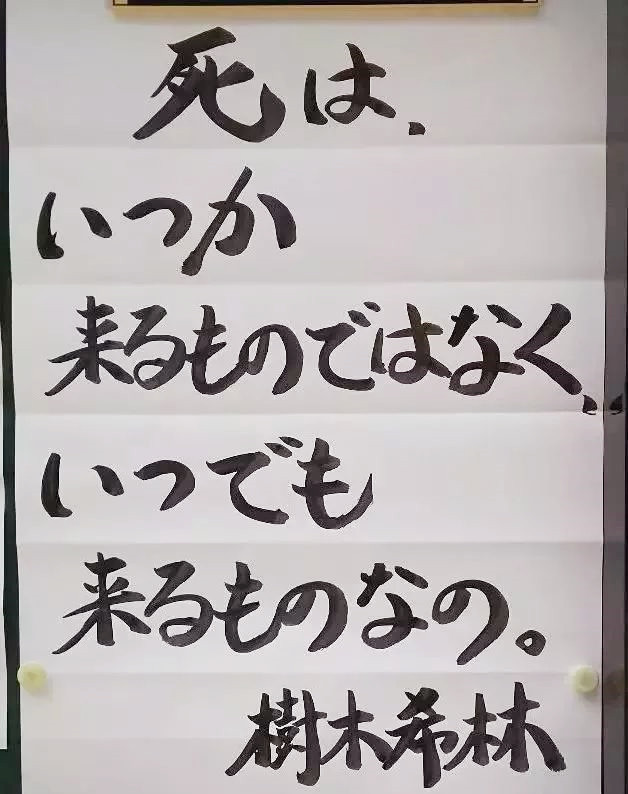 死は、
いつか
来るものではなく、
いつでも
来るものなの。
樹木希林